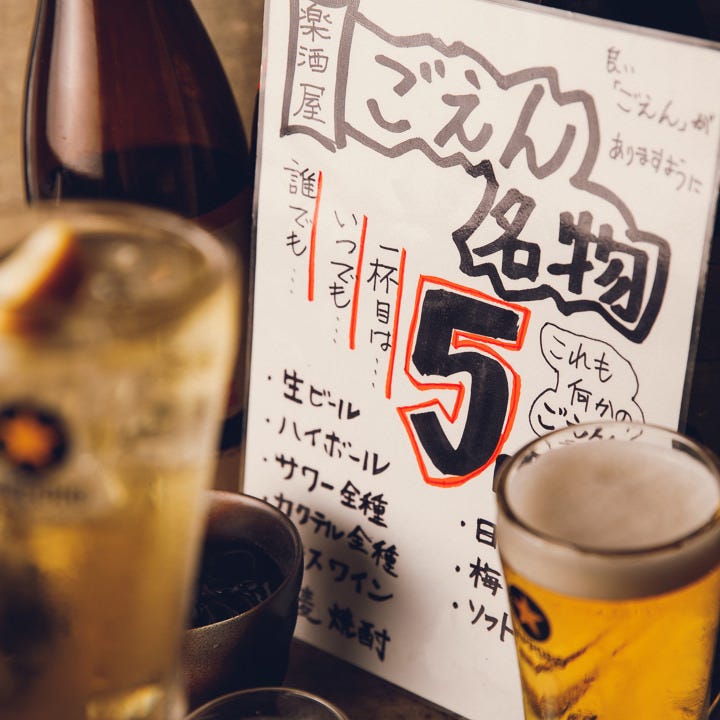 楽酒屋
ごえん
名物
良い
「ごえん」が
ありますように
誰でも…
いつでも…
一杯目は…
5
これも
何かの
・生ビール
・ハイボール
・サワー全種
・カクテル全種
スワイン
焼酎
・日
・梅
・ソフト